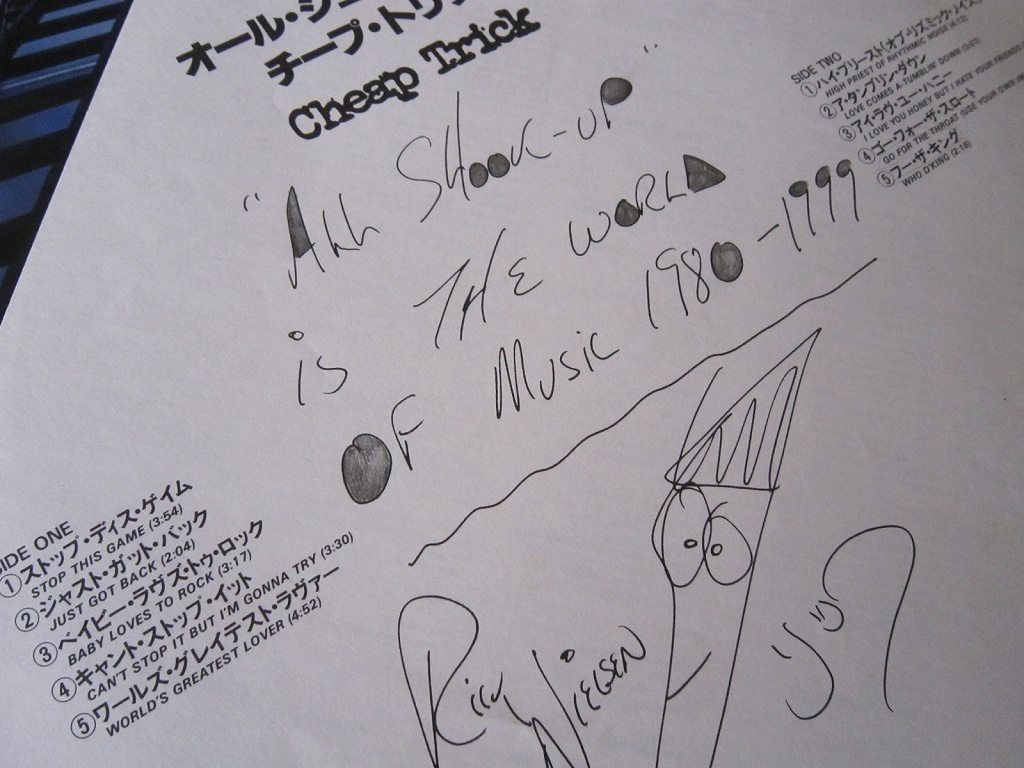 オール・シ
チープ・トリ
Cheap Trick
"All Shook-up"
is THE WORLD
OF Music 1980-1999
SIDE TWO
①ハイ・プリースト(オブ・リズミック・ノイズ
HIGH PRIEST OF RHYTHMIC NOISE (4:12)
②ア・タンブリン・ダウン
LOVE COMES A-TUMBLIN' DOWN (3:07)
③アイ・ラヴ・ユー・ハニー
I LOVE YOU HONEY BUT I HATE YOUR FRIENDS
④ゴー・フォー・ザ・スロート
GO FOR THE THROAT (USE YOUR OWN IM
⑤フー・ザ・キング
WHO D'KING (2:18)
IDE ONE
①ストップ・ディス・ゲイム
STOP THIS GAME (3:54)
②ジャスト・ガット・バック
JUST GOT BACK (2:04)
③ベイビー・ラヴズ・トゥ・ロック
BABY LOVES TO ROCK (3:17)
④キャント・ストップ・イット
CAN'T STOP IT BUT I'M GONNA TRY (3:30)
⑤ワールズ・グレイテスト・ラヴァー
WORLD'S GREATEST LOVER (4:52)
Rick Nielsen